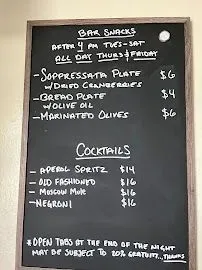 BAR SNACKS
AFTER 4 PM TUES-SAT
ALL DAY THURS & FRIDAY
- SOPPRESSATA PLATE $6
W/ DRIED CRANBERRIES
- BREAD PLATE $4
W/ OLIVE OIL
- MARINATED OLIVES $6
COCKTAILS
- APEROL SPRITZ $14
- OLD FASHIONED $16
- MOSCOW MULE $16
- NEGRONI $16
* OPEN TABS AT THE END OF THE NIGHT
MAY BE SUBJECT TO 20% GRATUITY...THANKS